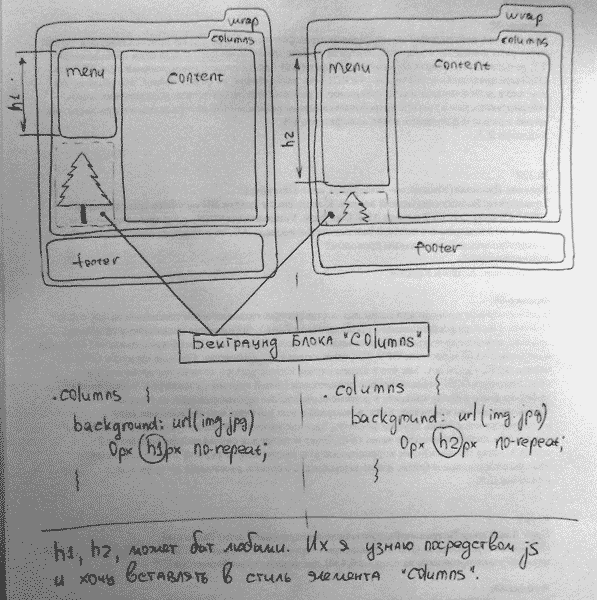 wrap
columns
menu
content
h1
footer
wrap
columns
menu
content
h2
footer
Бекграунд блока "columns"
.columns {
background: url(img.jpg)
0px h1px no-repeat;
}
.columns {
background: url(img.jpg)
0px h2px no-repeat;
}
h1, h2, может быт любыми. Их я узнаю посредством js
и хочу вставлять в стиль элемента "columns".